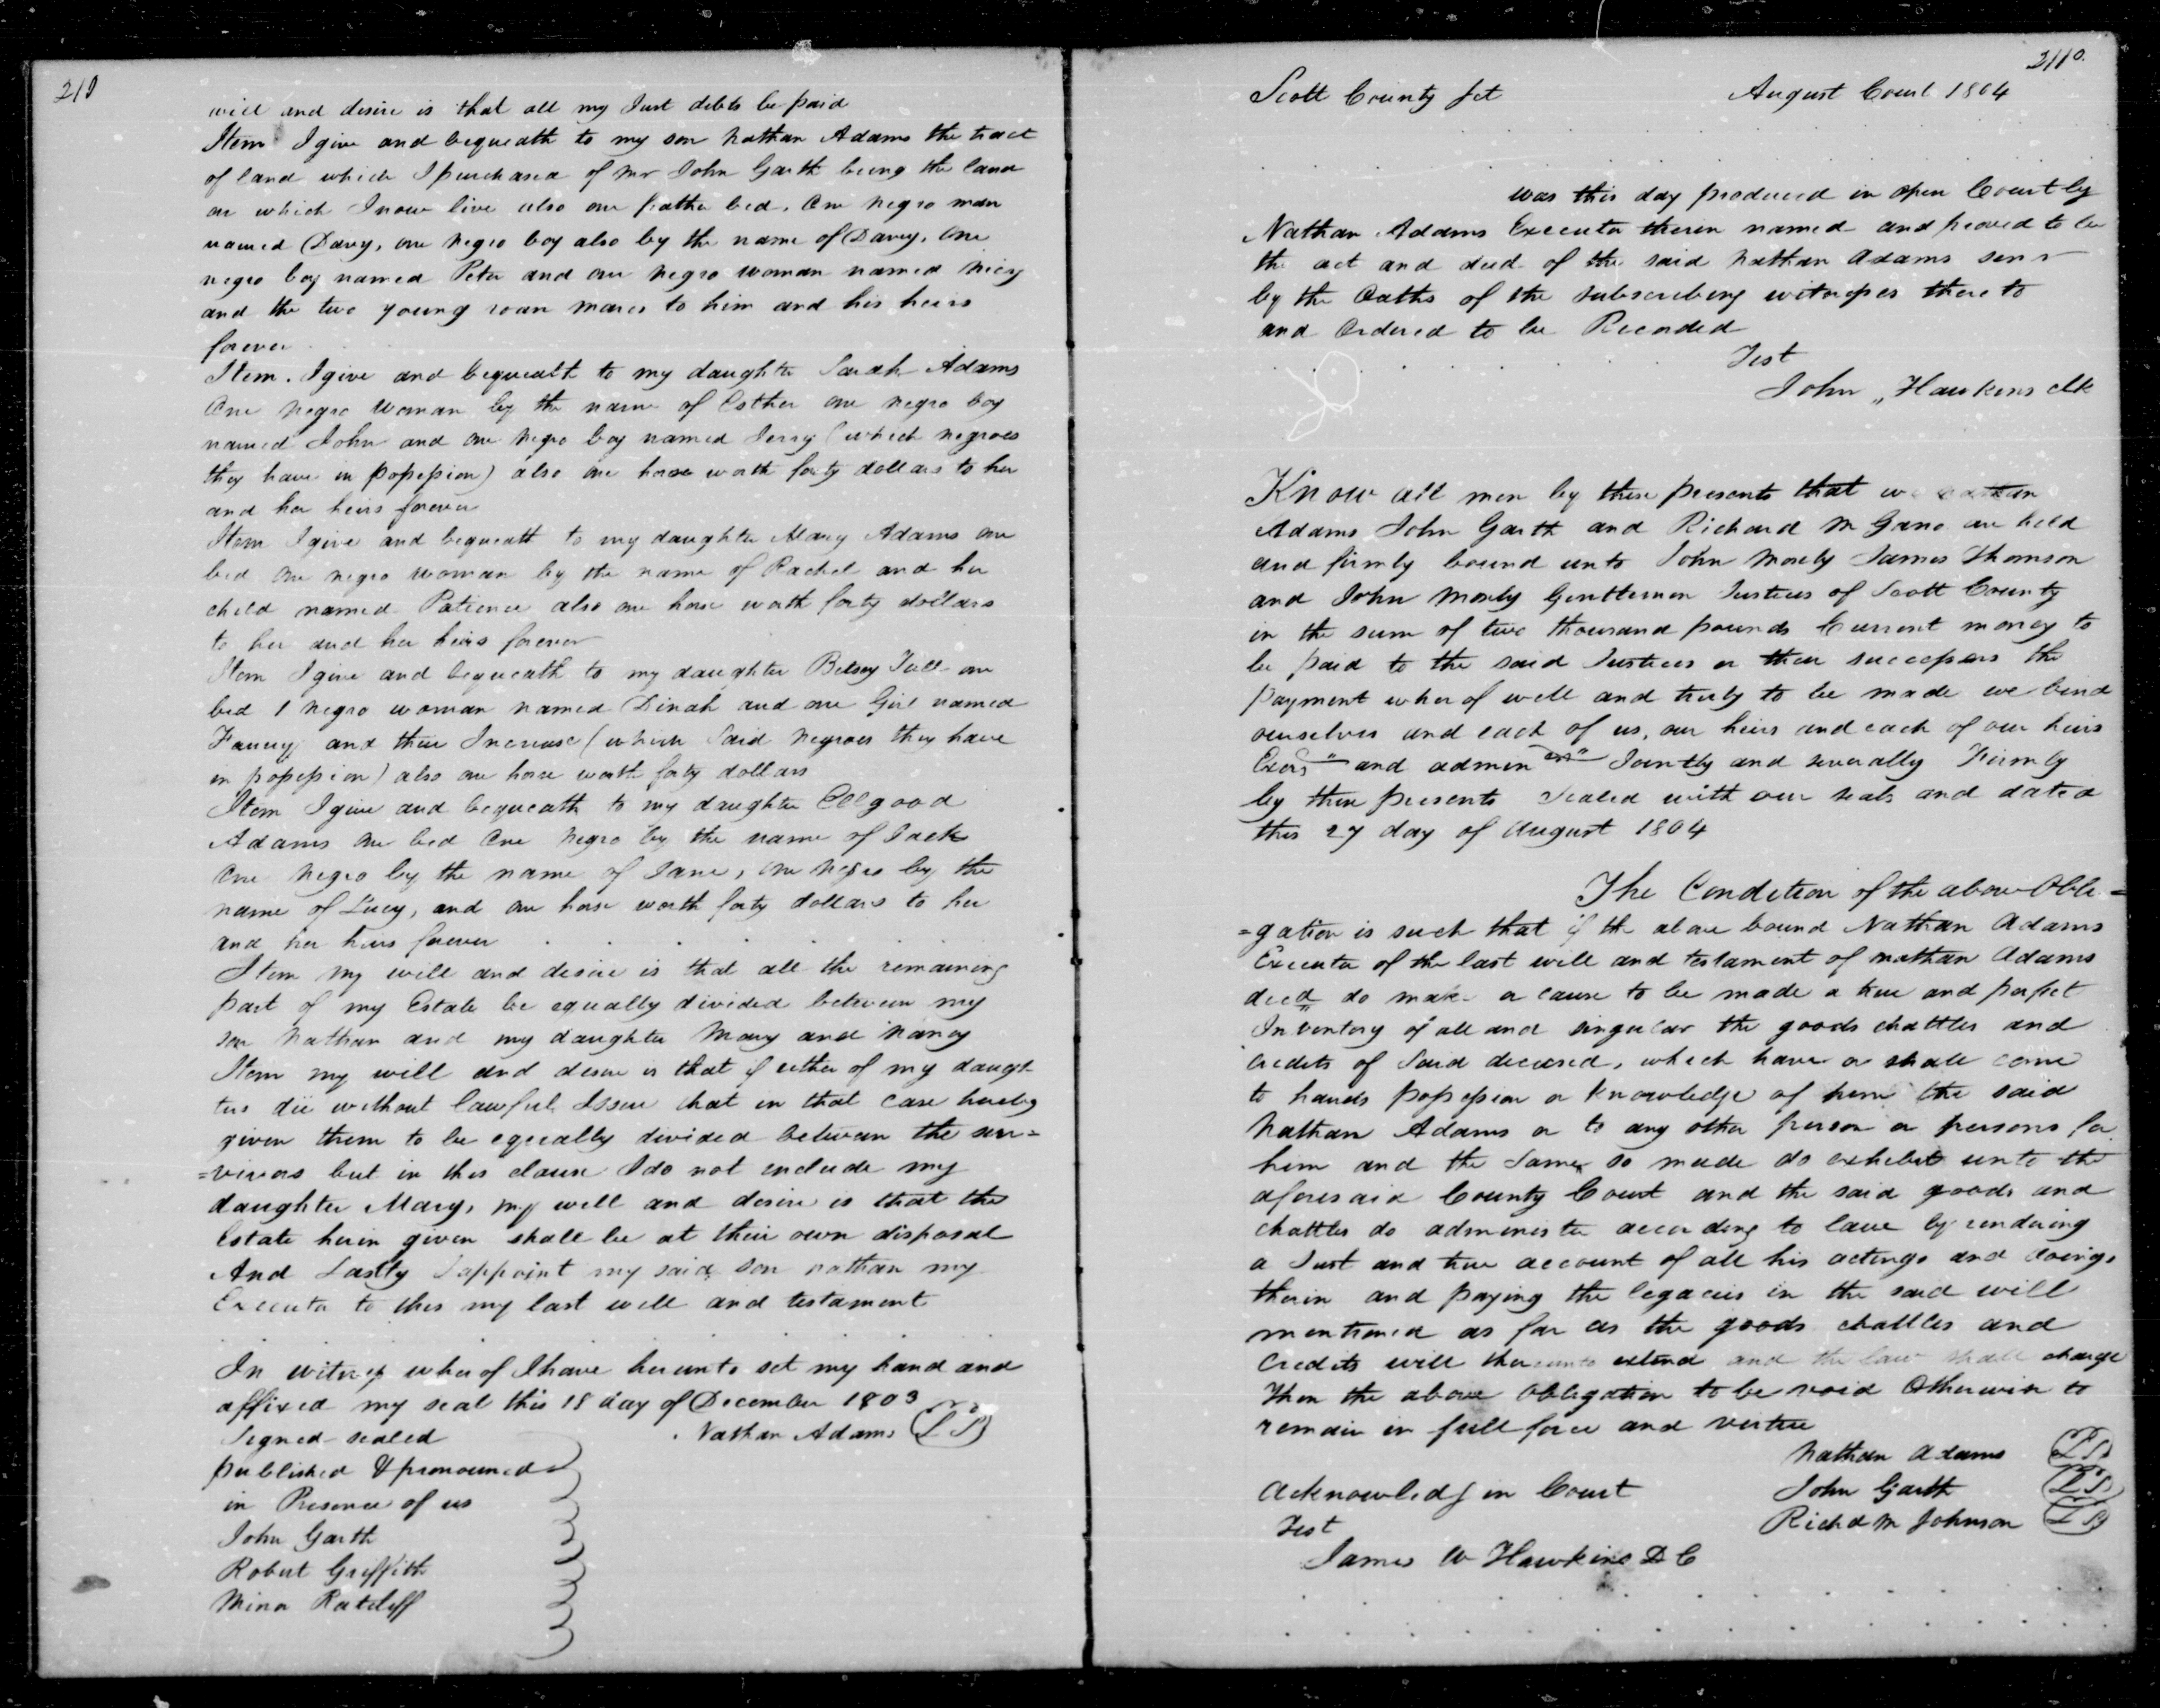 210
will and desire is that all my Just debts be paid
Item I give and bequeath to my son Nathan Adams the tract
of land which I purchased of Mr John Garth being the land
on which I now live also one feather bed, One negro man
named Davy, one negro boy also by the name of Davy, One
negro boy named Peter and one negro woman named Nicy
and the two young roan mares to him and his heirs
forever
Item. I give and bequeath to my daughter Sarah Adams
One negro woman by the name of Esther one negro boy
named John and one negro boy named Jerry (which negroes
they have in possession) also one horse worth forty dollars to her
and her heirs forever
Item I give and bequeath to my daughter Mary Adams one
bed one negro woman by the name of Rachel and her
child named Patience also one horse worth forty dollars
to her and her heirs forever
Item I give and bequeath to my daughter Betsey Tull one
bed 1 negro woman named Dinah and one Girl named
Fanny and their Increase (which said negroes they have
in possession) also one horse worth forty dollars
Item I give and bequeath to my daughter Ellgood
Adams one bed One negro by the name of Jack
One negro by the name of Jane, one negro by the
name of Lucy, and one horse worth forty dollars to her
and her heirs forever
Item my will and desire is that all the remaining
part of my Estate be equally divided between my
son Nathan and my daughter Mary and Nancy
Item my will and desire is that if either of my daugh
ters die without lawful Issue that in that case hereby
given them to be equally divided between the sur=
=vivors but in this clause I do not include my
daughter Mary, my will and desire is that the
Estate herein given shall be at their own disposal
And Lastly I appoint my said son nathan my
Executor to this my last will and testament
In witness wherof I have hereunto set my hand and
affixed my seal this 18 day of December 1803
Signed sealed Nathan Adams (LS)
published & pronounced
in Presence of us
John Garth
Robert Griffith
Minor Ratcliff
211
Scott County Sct August Court 1804
was this day produced in open Court by
Nathan Adams Executor therein named and proved to be
the act and deed of the said Nathan Adams senr
by the Oaths of the subscribing witnesses thereto
and Ordered to be Recorded
Test
John Hawkins clk
Know all men by these presents that we Nathan
Adams John Garth and Richard M Gano are held
and firmly bound unto John Mosely James Thomson
and John Mosely Gentlemen Justices of Scott County
in the sum of two thousand pounds Current money to
be paid to the said Justices or their successors the
payment wherof well and truly to be made we bind
ourselves and each of us, our heirs and each of our heirs
Exors and admin ors Jointly and severally Firmly
by these presents Sealed with our seals and dated
this 27 day of August 1804
The Condition of the above Obli=
=gation is such that if the above bound Nathan Adams
Executor of the last will and testament of nathan Adams
decd do make or cause to be made a true and perfect
Inventory of all and singular the goods chattles and
credits of said deceased, which have or shall come
to hands possession or knowledge of him the said
Nathan Adams or to any other person or persons for
him and the same so made do exhibit unto the
aforesaid County Court and the said goods and
chattles do administer according to law by rendering
a Just and true account of all his actings and doings
therin and paying the legacies in the said will
mentioned as far as the goods chattles and
Credits will thereunto extend and the law shall charge
Then the above Obligation to be void Otherwise to
remain in full force and virtue
Nathan Adams (LS)
Acknowledg in Court John Garth (LS)
Test Richd M Johnson (LS)
James W Hawkins D C